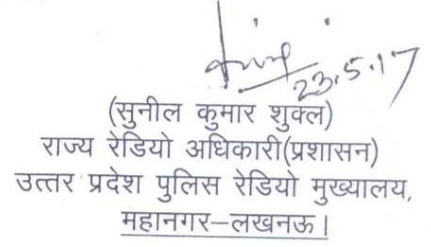 23.5.17
(सुनील कुमार शुक्ल)
राज्य रेडियो अधिकारी(प्रशासन)
उत्तर प्रदेश पुलिस रेडियो मुख्यालय,
महानगर–लखनऊ।